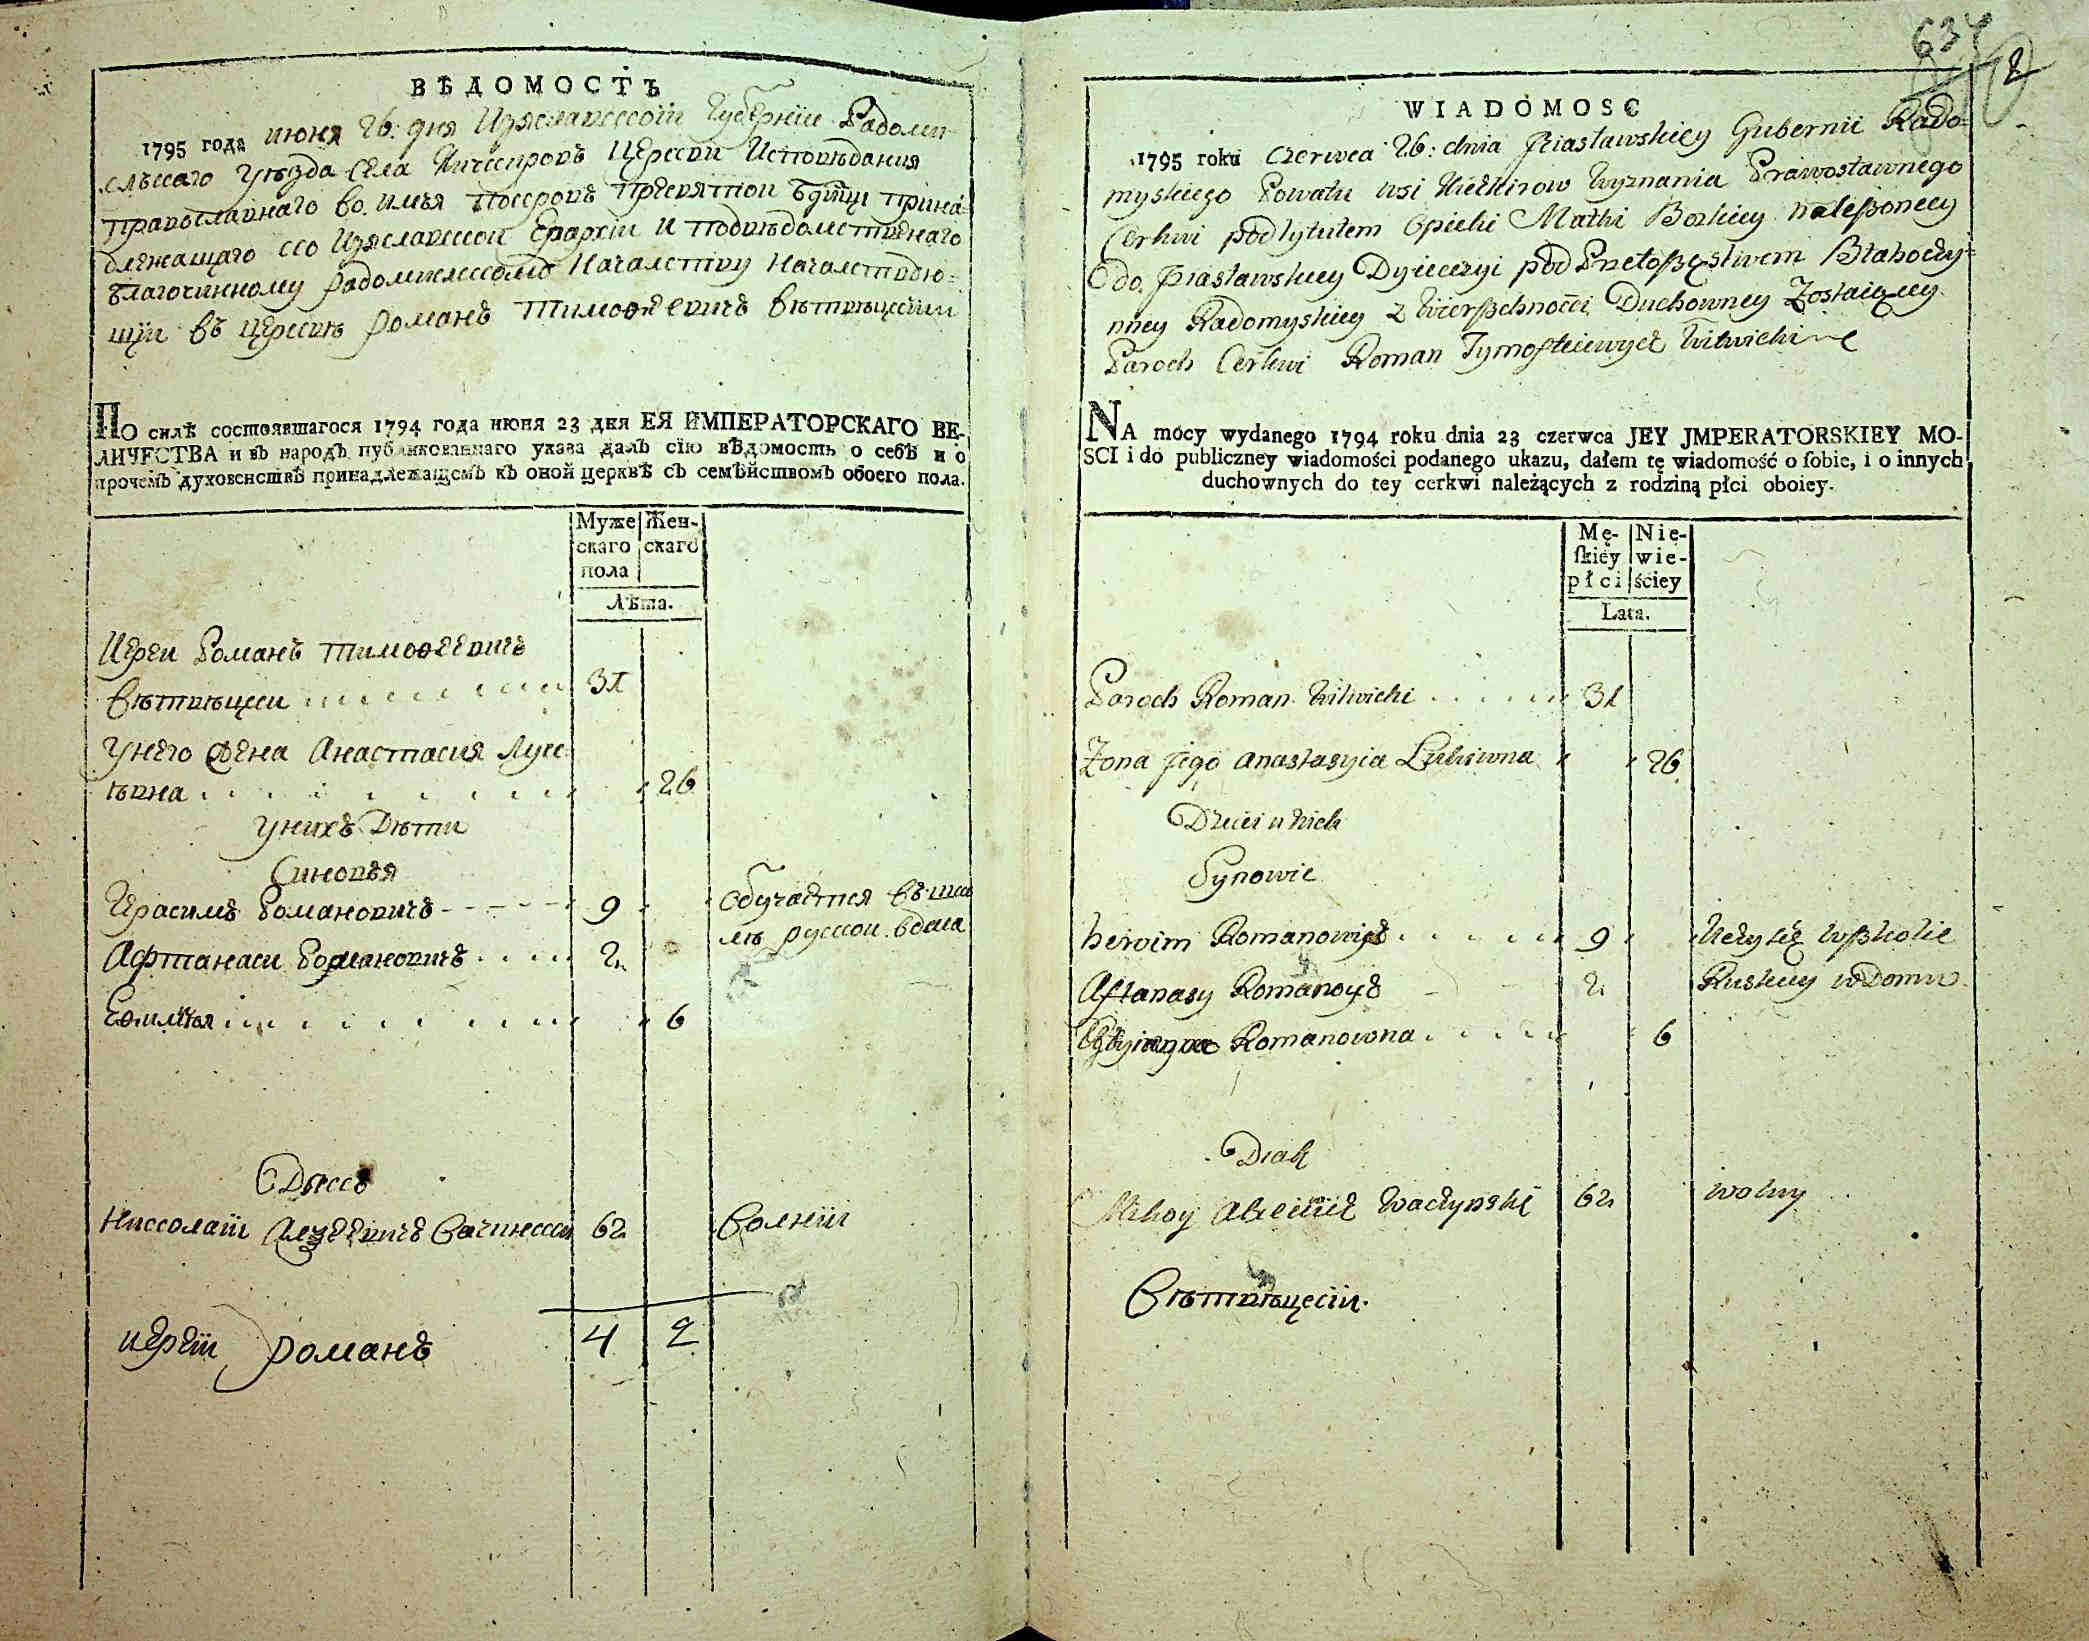 ВѢДОМОСТЬ
1795 года июня 26: дня Изяславской Губернїи Радоми
слъскаго уѣзда села Кичкировъ Церкви Исповѣдания
православнаго во имъя покровъ пресвятои Бдцы прина-
длежащаго ко Изяславскои Епархїи и подвѣдомственнаго
благочинному радомисскому Началству Началствою-
щїи въ церквѣ романъ тимоѳеевичъ витвѣцкїи
ПО силѣ состоявшагося 1794 года июня 23 дня ЕЯ ИМПЕРАТОРСКАГО ВЕ-
ЛИЧЕСТВА и въ народъ публикованнаго указа далъ сїю вѣдомость о себѣ и о
прочемъ духовенствѣ принадлежащемъ къ оной церквѣ съ семѣйствомъ обоего пола.
Муже Жен-
скаго скаго
пола
Лѣта.
Иереи Романъ тимоѳеевичъ
витвѣцки 31
унего жена Анастасия Лук-
ѣвна 26
унихъ Дѣти
Синовъя
Герасимъ Романовичъ 9 обучается въ шко
лѣ руской вдома
Афтанаси Романовичъ 2
Еѳимъя 6
Дякъ
Николаїи Алеѯеевичъ Вачински 62 волнїи
4 2
иерїи романъ
634
2
WIADOMOSC
1795 roku czerwca 26: dnia Jziasławskiey Gubernii Rado-
myskiego Powatu wsi Kiczkirow Wyznania Prawosławnego
Cerkwi pod tytułem Opieki Matki Bozkiey należonccy
do Jziasławskiey Dyiecezyi pod Przełożęstwem Błahoczy-
nney Radomyskiey z Wierzchności Duchowney Zostaiącey
Paroch Cerkwi Roman Tymofteiewycz Witwicki
NA mocy wydanego 1794 roku dnia 23 czerwca JEY JMPERATORSKIEY MO-
SCI i do publiczney wiadomości podanego ukazu, dałem tę wiadomość o sobie, i o innych
duchownych do tey cerkwi należących z rodziną płci oboiey.
Mę- Nie-
skiéy wie-
płci ściey
Lata.
Paroch Roman Witwicki 31
Zona jego Anastasyia Lukiwna 26
Dzieci u nich
Synowie
herasim Romanowicz 9 Uczy się w szkole
Ruskiey w Domu
Aftanasy Romanowicz 2
Romanowna 6
Diak
Mikoy Alexiiewicz Waczynski 62 wolny
Витвѣцкїи.